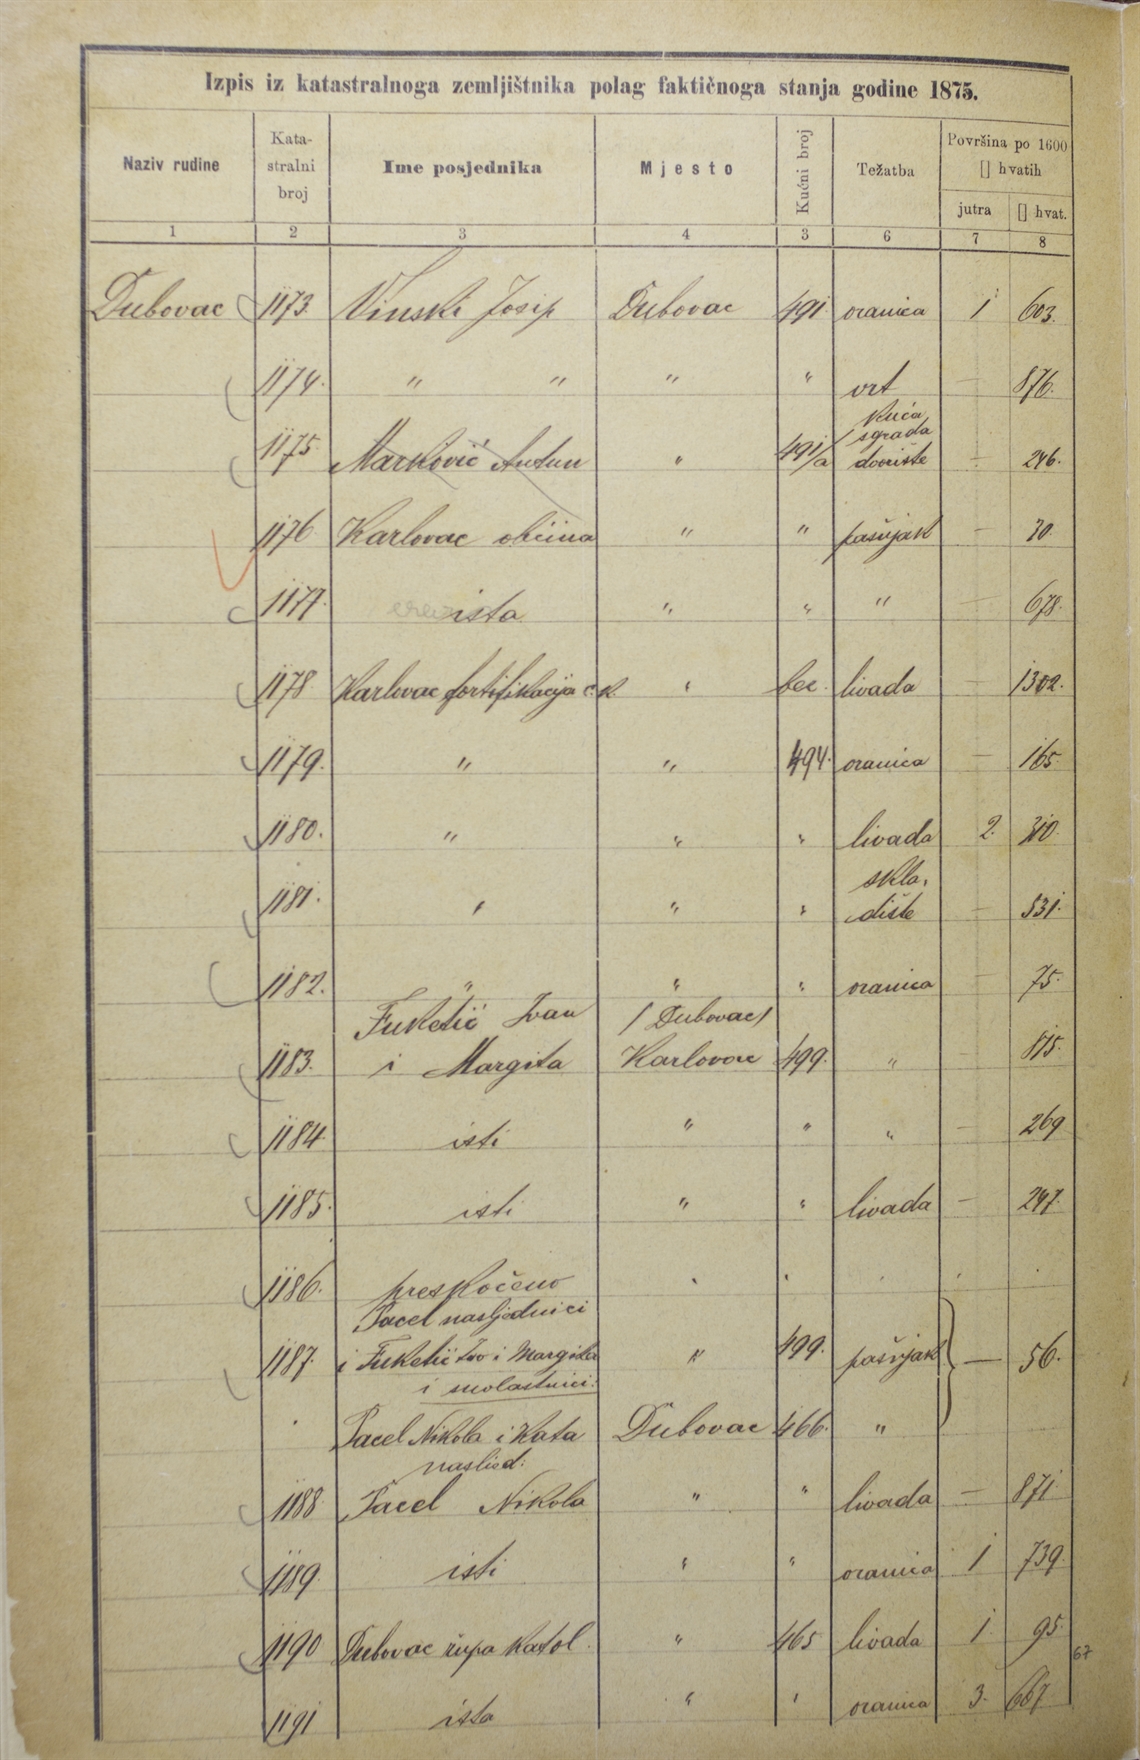 Izpis iz katastralnoga zemljištnika polag faktičnoga stanja godine 1875.
Naziv rudine Kata-stralni broj Ime posjednika Mjesto Kućni broj Težatba Površina po 1600 [] hvatih
jutra [] hvat.
1 2 3 4 3 6 7 8
Dubovac 1173. Vinski Josip Dubovac 491. oranica 1 603.
1174. " " " " vrt — 876.
kuća
sgrada
1175. Marković Antun " 491/a dvorište — 246.
1176 Karlovac obćina " " pašnjak — 30.
1177. ista " " " — 678.
1178 Karlovac fortifikacija c. k. " bec. livada — 1302.
1179. " " 494. oranica — 165.
1180. " " " livada 2. 310.
skla-
1181. " " " dište — 531.
1182. " " " oranica — 75.
Fuketić Ivan / Dubovac /
1183. i Margita Karlovac 499. " — 815.
1184 isti " " " — 269
1185. isti " " livada — 247.
1186. preskočeno
Pacel nasljednici
1187. i Fuketić Ivo i Margita " 499. pašnjak — 56.
i suvlastnici:
Pacel Nikola i Kata Dubovac 466. "
naslied:
1188 Pacel Nikola " " livada — 871.
1189. isti " " oranica 1 739.
1190 Dubovac župa katol. " 465 livada 1. 95.
67
1191 ista " " oranica 3. 667.